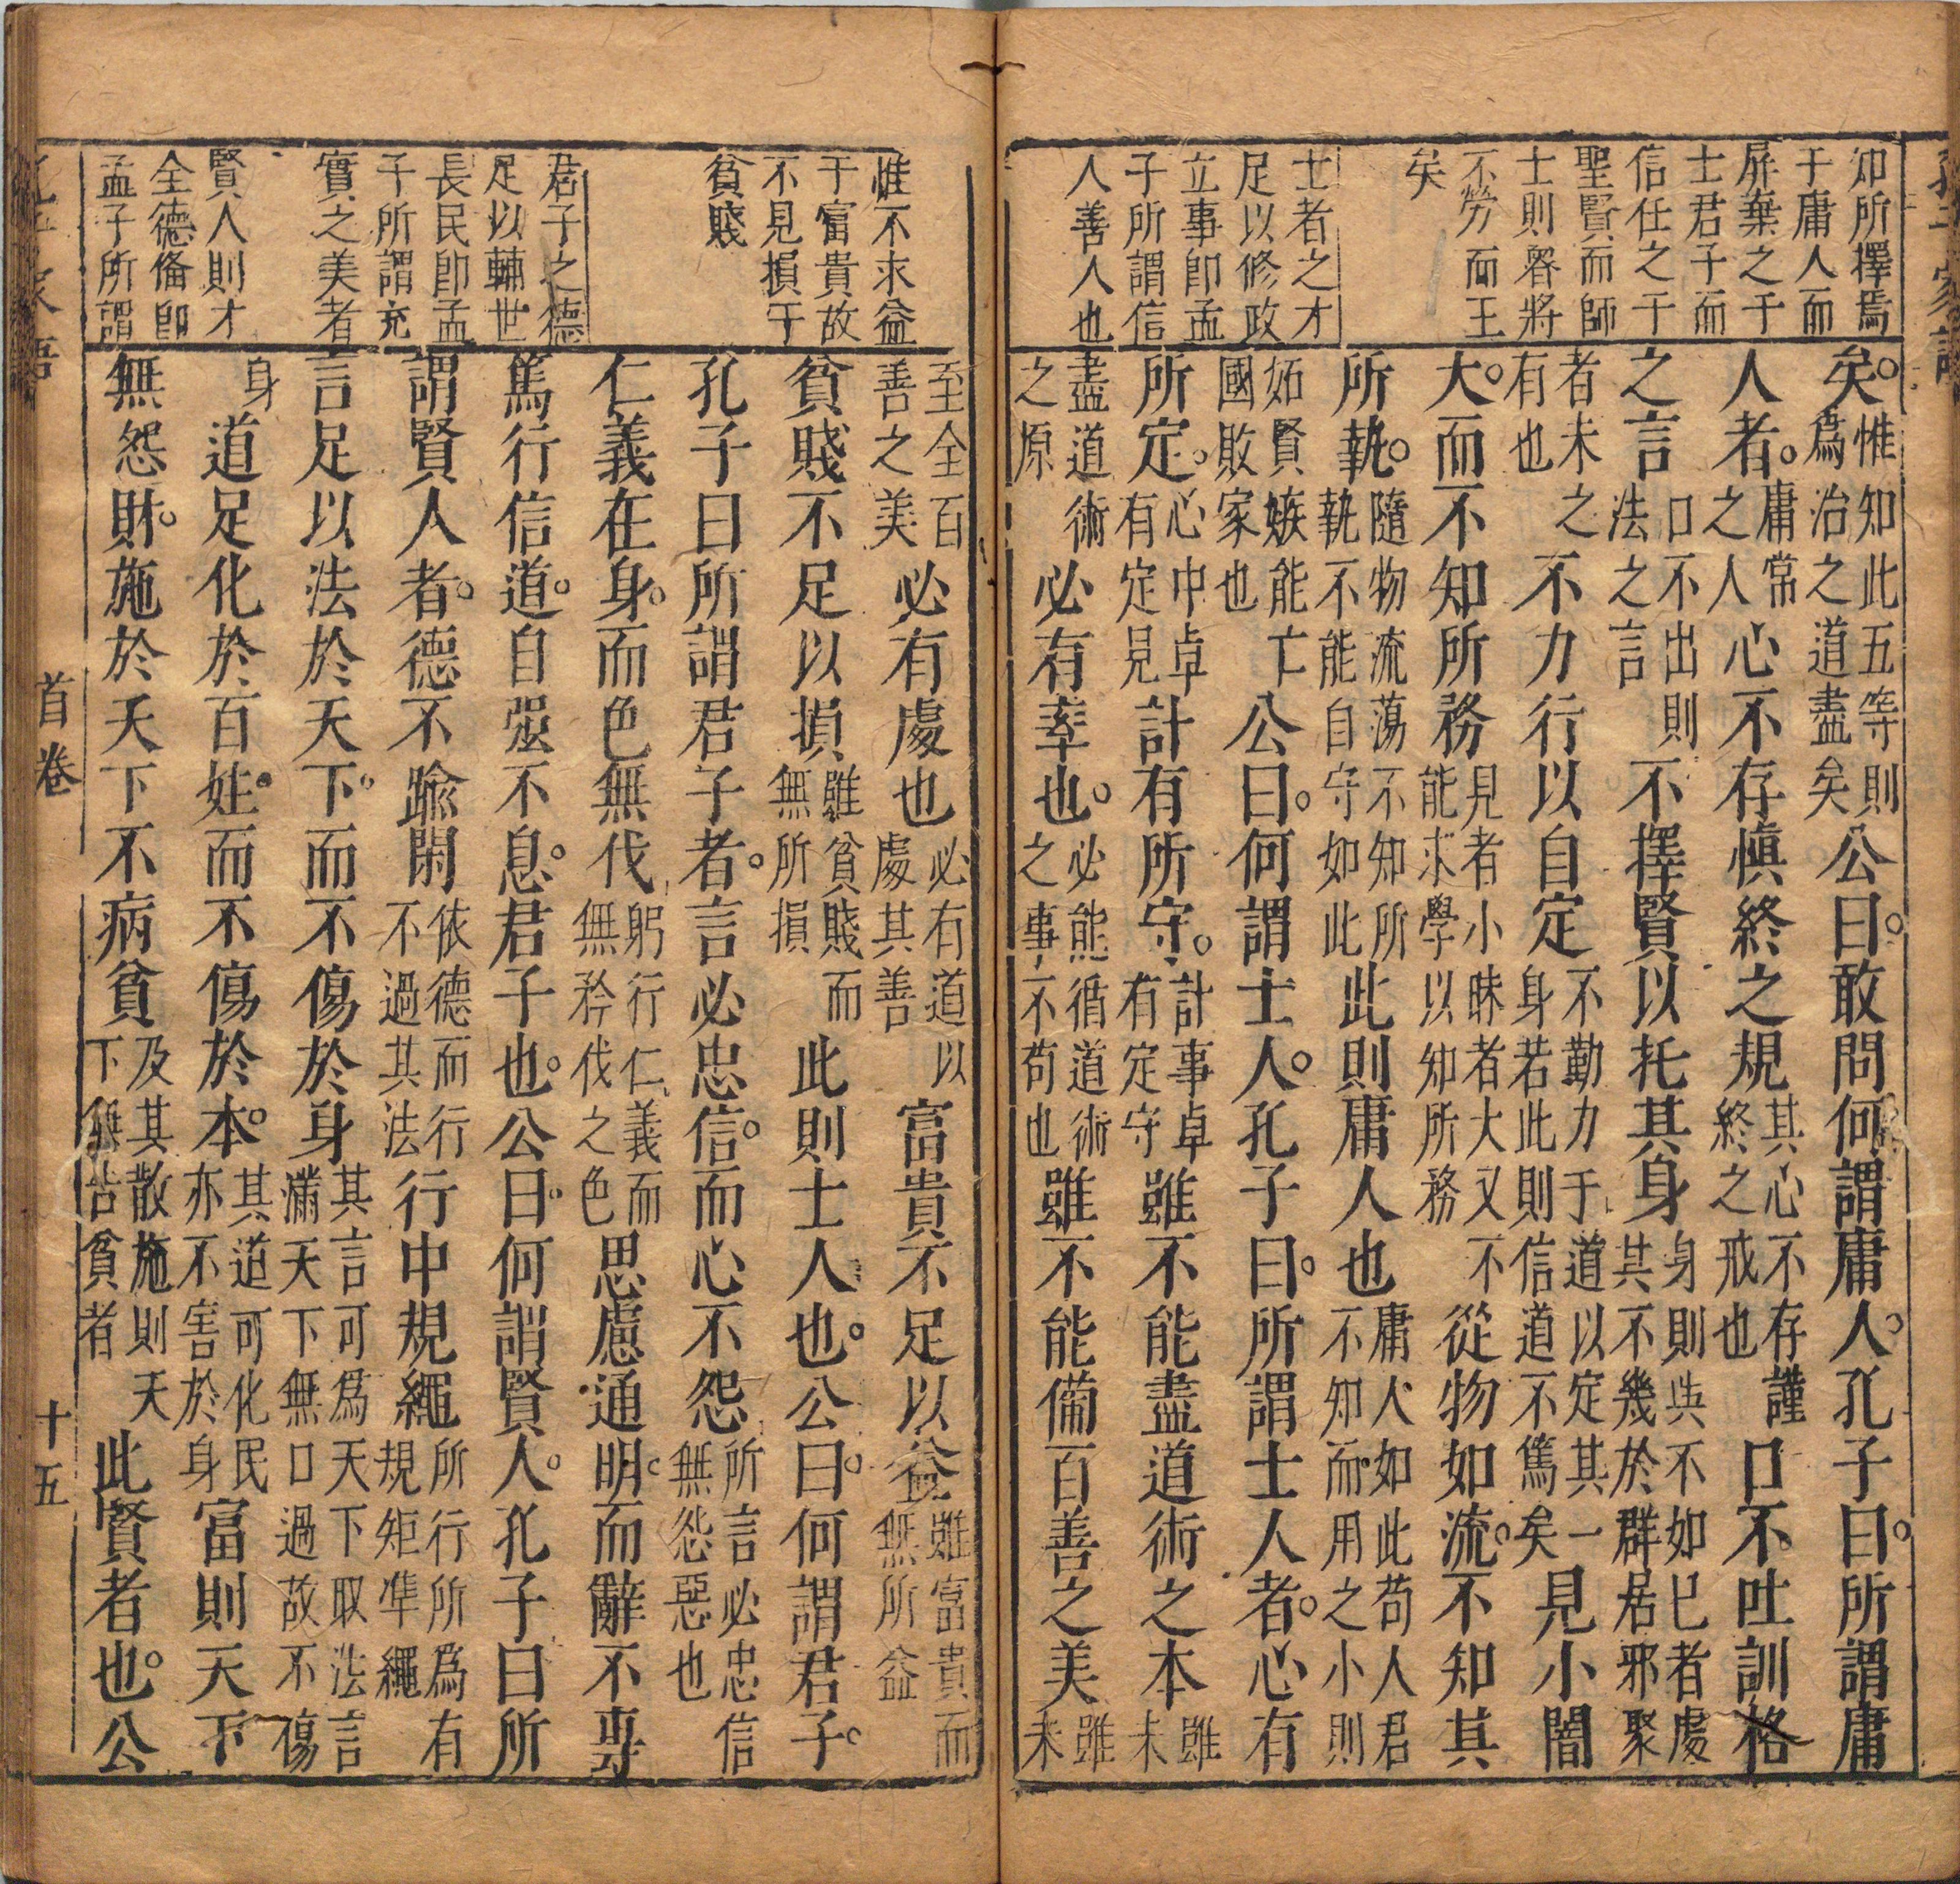 知所擇焉
于庸人而
屏棄之于
士君子而
信任之于
聖賢而師
士則器將
不勞而王
矣
士者之才
足以修政
立事即孟
子所謂信
人善人也
矣。惟知此五等則爲治之道盡矣公曰。敢問何謂庸人。孔子曰。所謂庸
人者。庸常之人心不存慎終之規其心不存謹終之戒也口不吐訓格
之言口不出則法之言不擇賢以托其身身則與不如已者處其不幾於群居邪聚
者未之有也不力行以自定不勤力于道以定其一身若此則信道不篤矣見小闇
大。而不知所務見者小昧者大又不能求學以知所務從物如流。不知其
所執。隨物流蕩不知所執不能自守如此此則庸人也庸人如此苟人君不知而用之小則
妬賢嫉能亡國敗家也公曰。何謂士人。孔子曰。所謂士人者。心有
所定。心中卓有定見計有所守。計事卓有定守雖不能盡道術之本雖未
盡道術之原必有率也。必能循道術之事不苟也雖不能備百善之美雖未
惟不求益
于富貴故
不見損于
貧賤
君子之德
足以輔世
長民即孟
子所謂充
實之美者
賢人則才
全德備即
孟子所謂
至全百善之美必有處也必有道以處其善富貴不足以益雖富貴而無所益
貧賤不足以損雖貧賤而無所損此則士人也。公曰。何謂君子。
孔子曰所謂君子者。言必忠信。而心不怨所言必忠信無怨惡也
仁義在身。而色無伐躬行仁義而無矜伐之色思慮通明。而辭不專
篤行信道。自强不息。君子也。公曰。何謂賢人。孔子曰所
謂賢人者。德不踰閑依德而行不過其法行中規繩所行所爲有規矩準繩
言足以法於天下。而不傷於身其言可爲天下取法言滿天下無口過故不傷
身道足化於百姓。而不傷於本。其道可化民亦不害於身富則天下
無怨財。施於天下不病貧及其散施則天下無告貧者此賢者也。公
首卷
十五